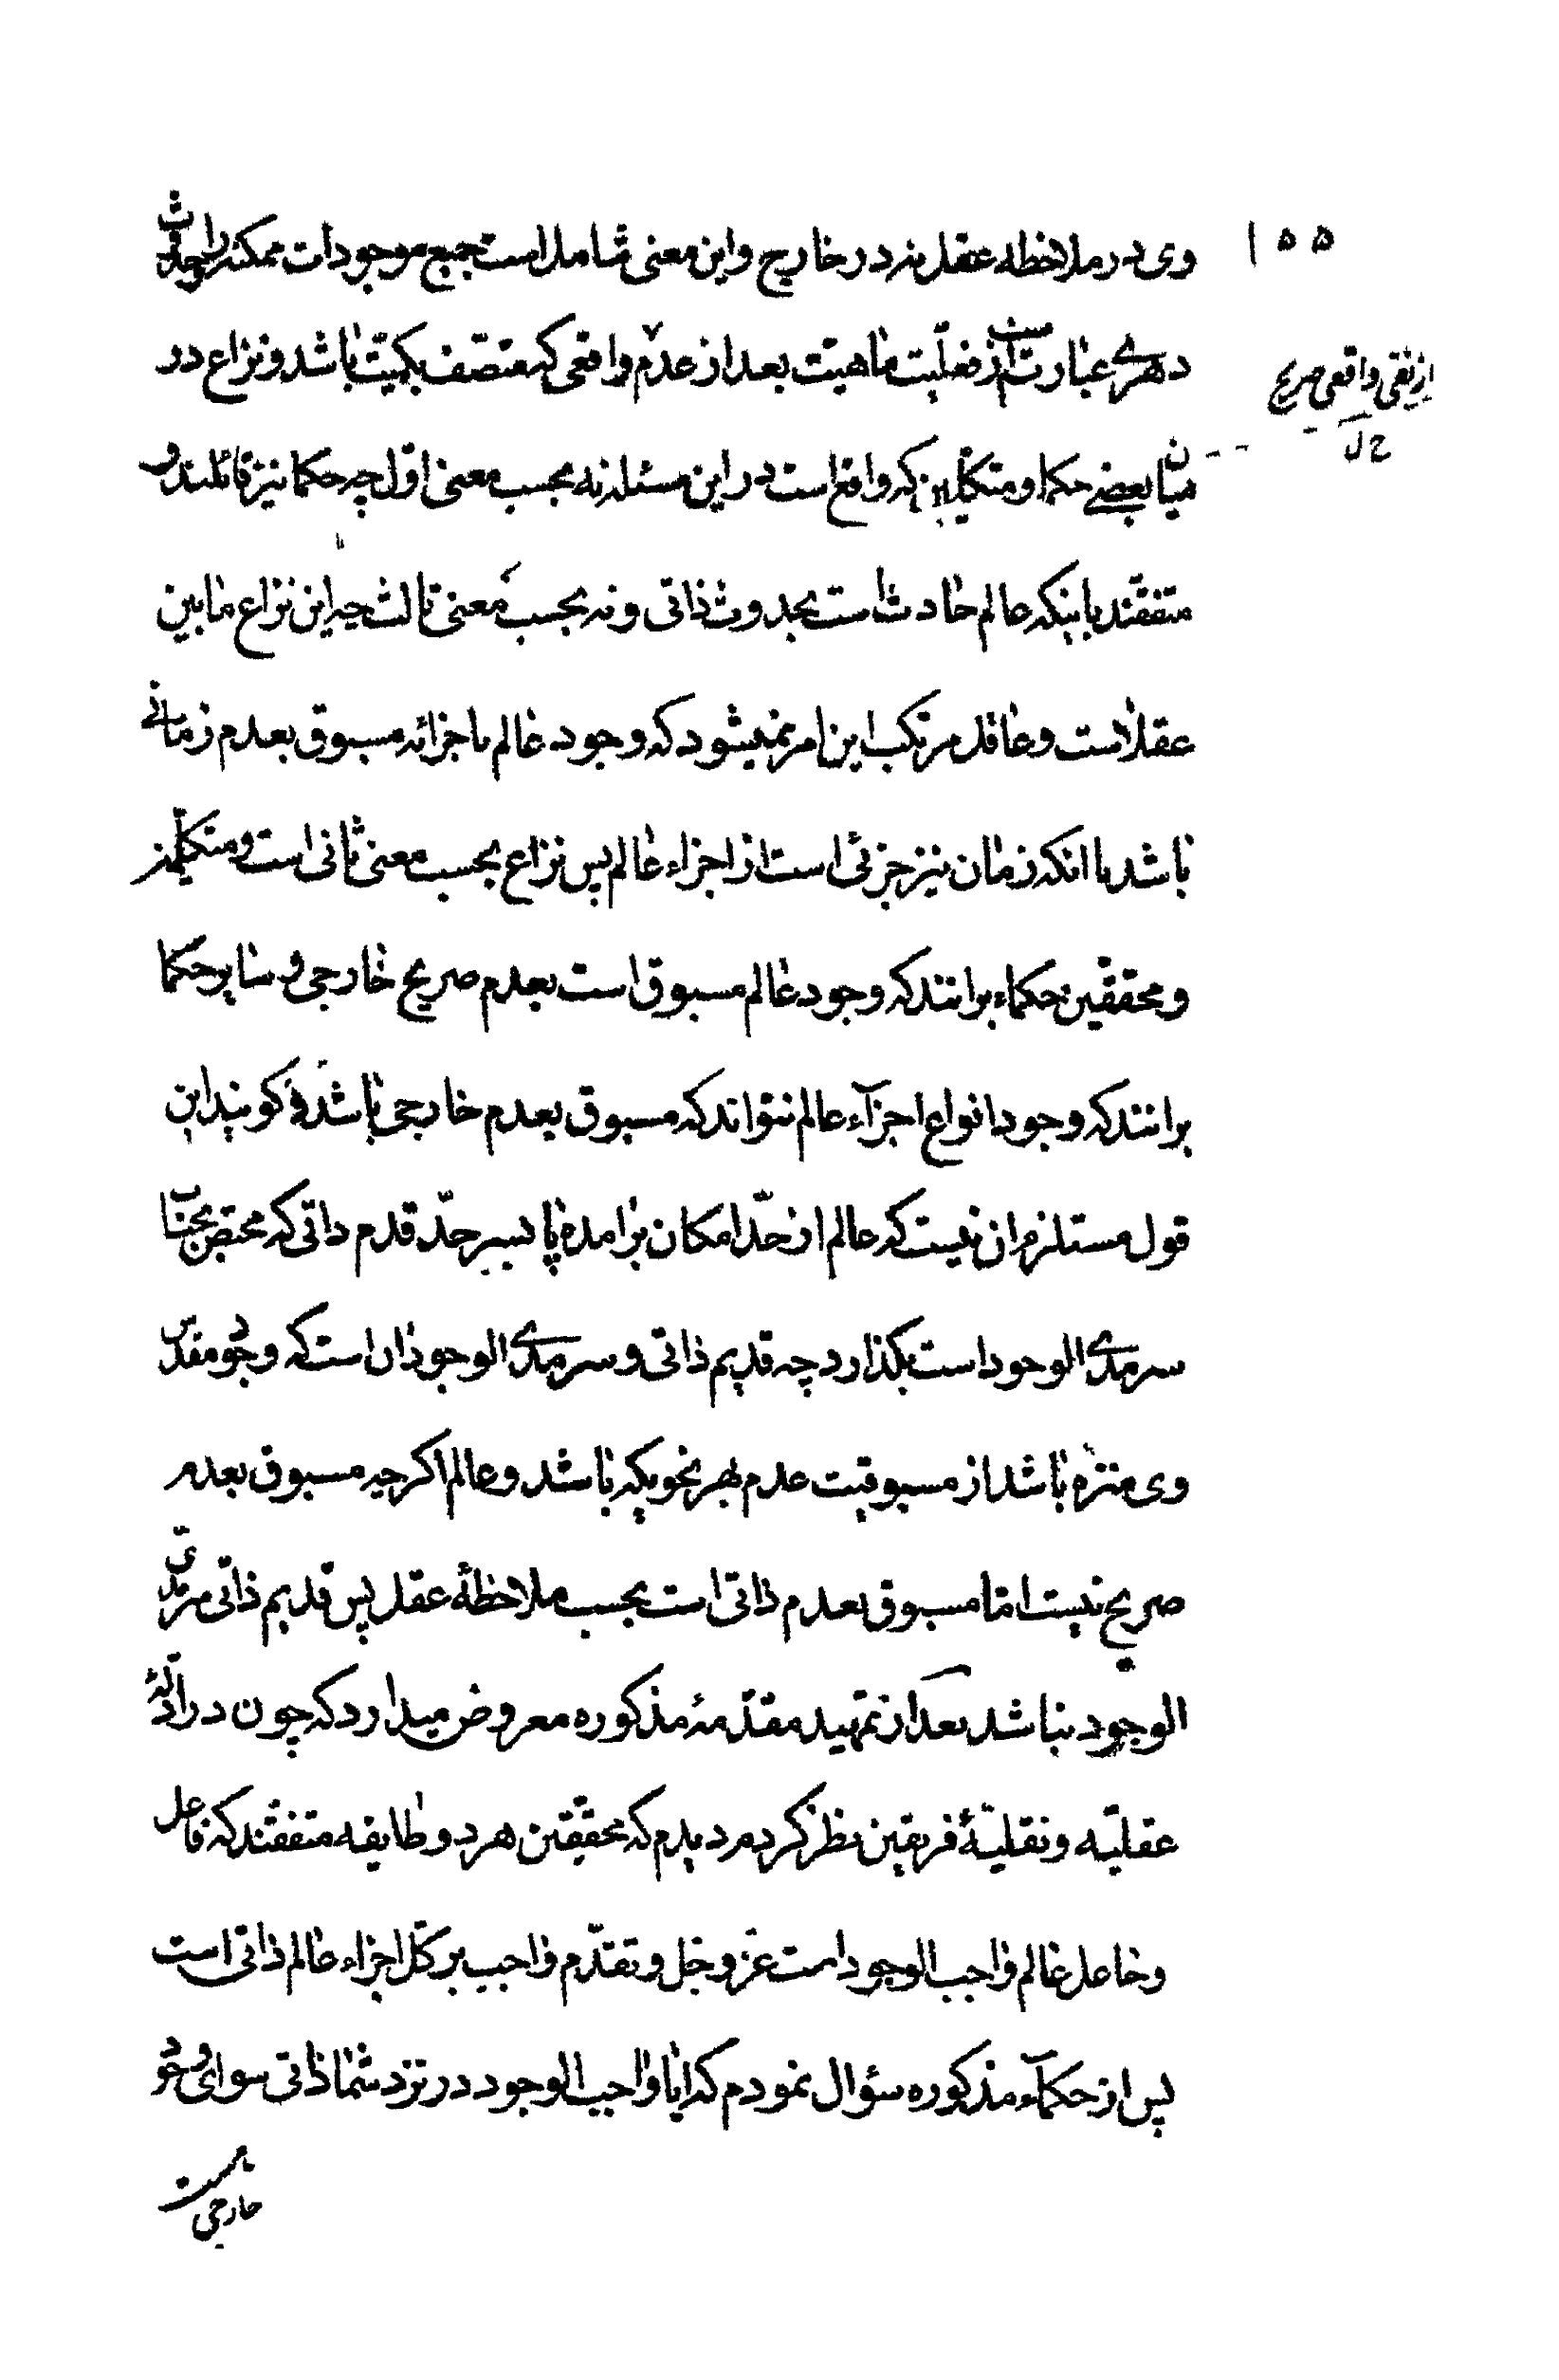 ۱۵۵
وی در ملاحظه عقل نه در خارج و این معنی شامل است جمیع موجودات ممکنه را و حدوث
دهری عبارتست از فعلیت ماهیت بعد از عدم واقعی که متصف بکمیت باشد و نزاع در
از نفی واقعی صریح
ح ل
میان بعضی حکما و متکلمین که واقع است در این مسئله نه بحسب معنی اول چه حکما نیز قائلند و
متفقند باینکه عالم حادث است بحدوث ذاتی و نه بحسب معنی ثالث چه این نزاع مابین
عقلاست و عاقل مرتکب این امر نمیشود که وجود عالم باجزائه مسبوق بعدم زمانی
باشد با انکه زمان نیز جزئی است از اجزاء عالم پس نزاع بحسب معنی ثانی است و متکلمین
و محققین حکماء برانند که وجود عالم مسبوق است بعدم صریح خارجی و سایر حکما
برانند که وجود انواع اجزآء عالم نتواند که مسبوق بعدم خارجی باشد و کویند این
قول مستلزم ان نیست که عالم از حدّ امکان برامده پا بسر حدّ قدم ذاتی که مختص بجناب
سرمدی الوجود است بکذارد چه قدیم ذاتی و سرمدی الوجود ان است که وجود مقدس
وی منزه باشد از مسبوقیت عدم بهر نحویکه باشد و عالم اکرچه مسبوق بعدم
صریح نیست امّا مسبوق بعدم ذاتی است بحسب ملاحظهٔ عقل پس قدیم ذاتی سرمدی
الوجود نباشد بعد از تمهید مقدّمهٔ مذکوره معروض میدارد که چون در ادلّهٔ
عقلیّه و نقلیّهٔ فریقین نظر کردم دیدم که محقّقین هر دو طایفه متفقند که فاعل
و جاعل عالم واجب الوجود است عزّ و جل و تقدّم واجب بر کلّ اجزاء عالم ذاتی است
پس از حکمآء مذکوره سؤال نمودم که ایا واجب الوجود در نزد شما ذاتی سوای وجود
خارجی